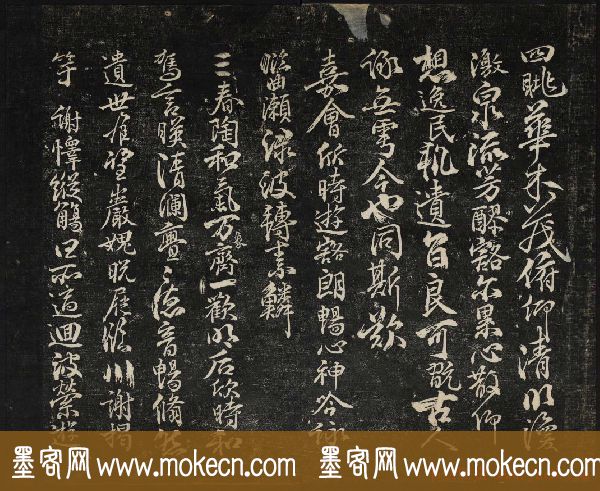 四眺華木茂俯仰清川渙
激泉流芳醪豁尒累心散仰
想逸民軌遺旨良可翫古人
詠無雩今也同斯歎
嘉會欣時遊豁朗暢心神吟詠
曲瀨淥波轉素鱗
三春陶和氣万齊一歡明后欣時和
駕言暎清瀾亹々德音暢脩
遺世有望巖媿晚屣臨川謝揭
竿 謝懌縱觴所適迴波縈遊
墨客网 www.mokecn.com 墨客网 www.mokecn.com